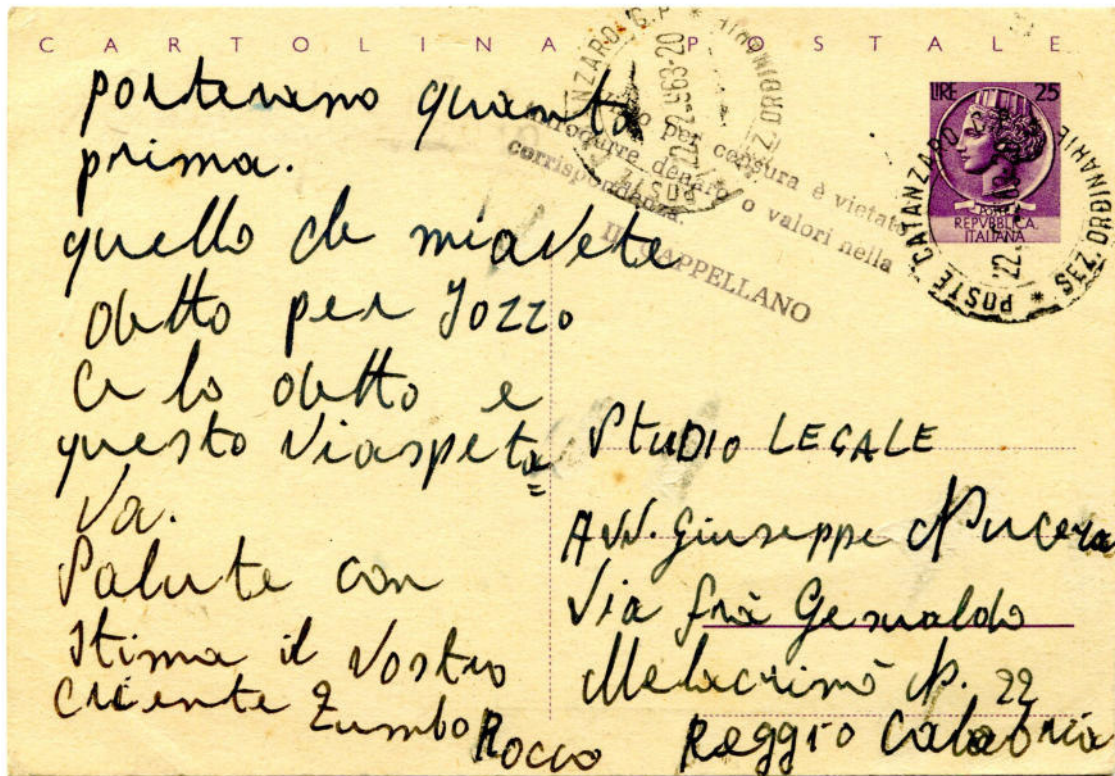 CARTOLINA POSTALE
porterano quanto
prima.
quello che miavete
detto per Jozzo
Ce lo detto e
questo Viaspeta=
Va.
Salute con
Stima il Vostro
criente Zumbo Rocco
Visto per censura è vietato
introdurre denaro o valori nella
corrispondenza.
IL CAPPELLANO
LIRE 25
POSTE
REPVBBLICA
ITALIANA
POSTE CATANZARO
SEZ. ORDINARIE
STUDIO LEGALE
Avv. Giuseppe Nucera
Via frà Gesualdo
Melacrimò N. 22
Reggio Calabria